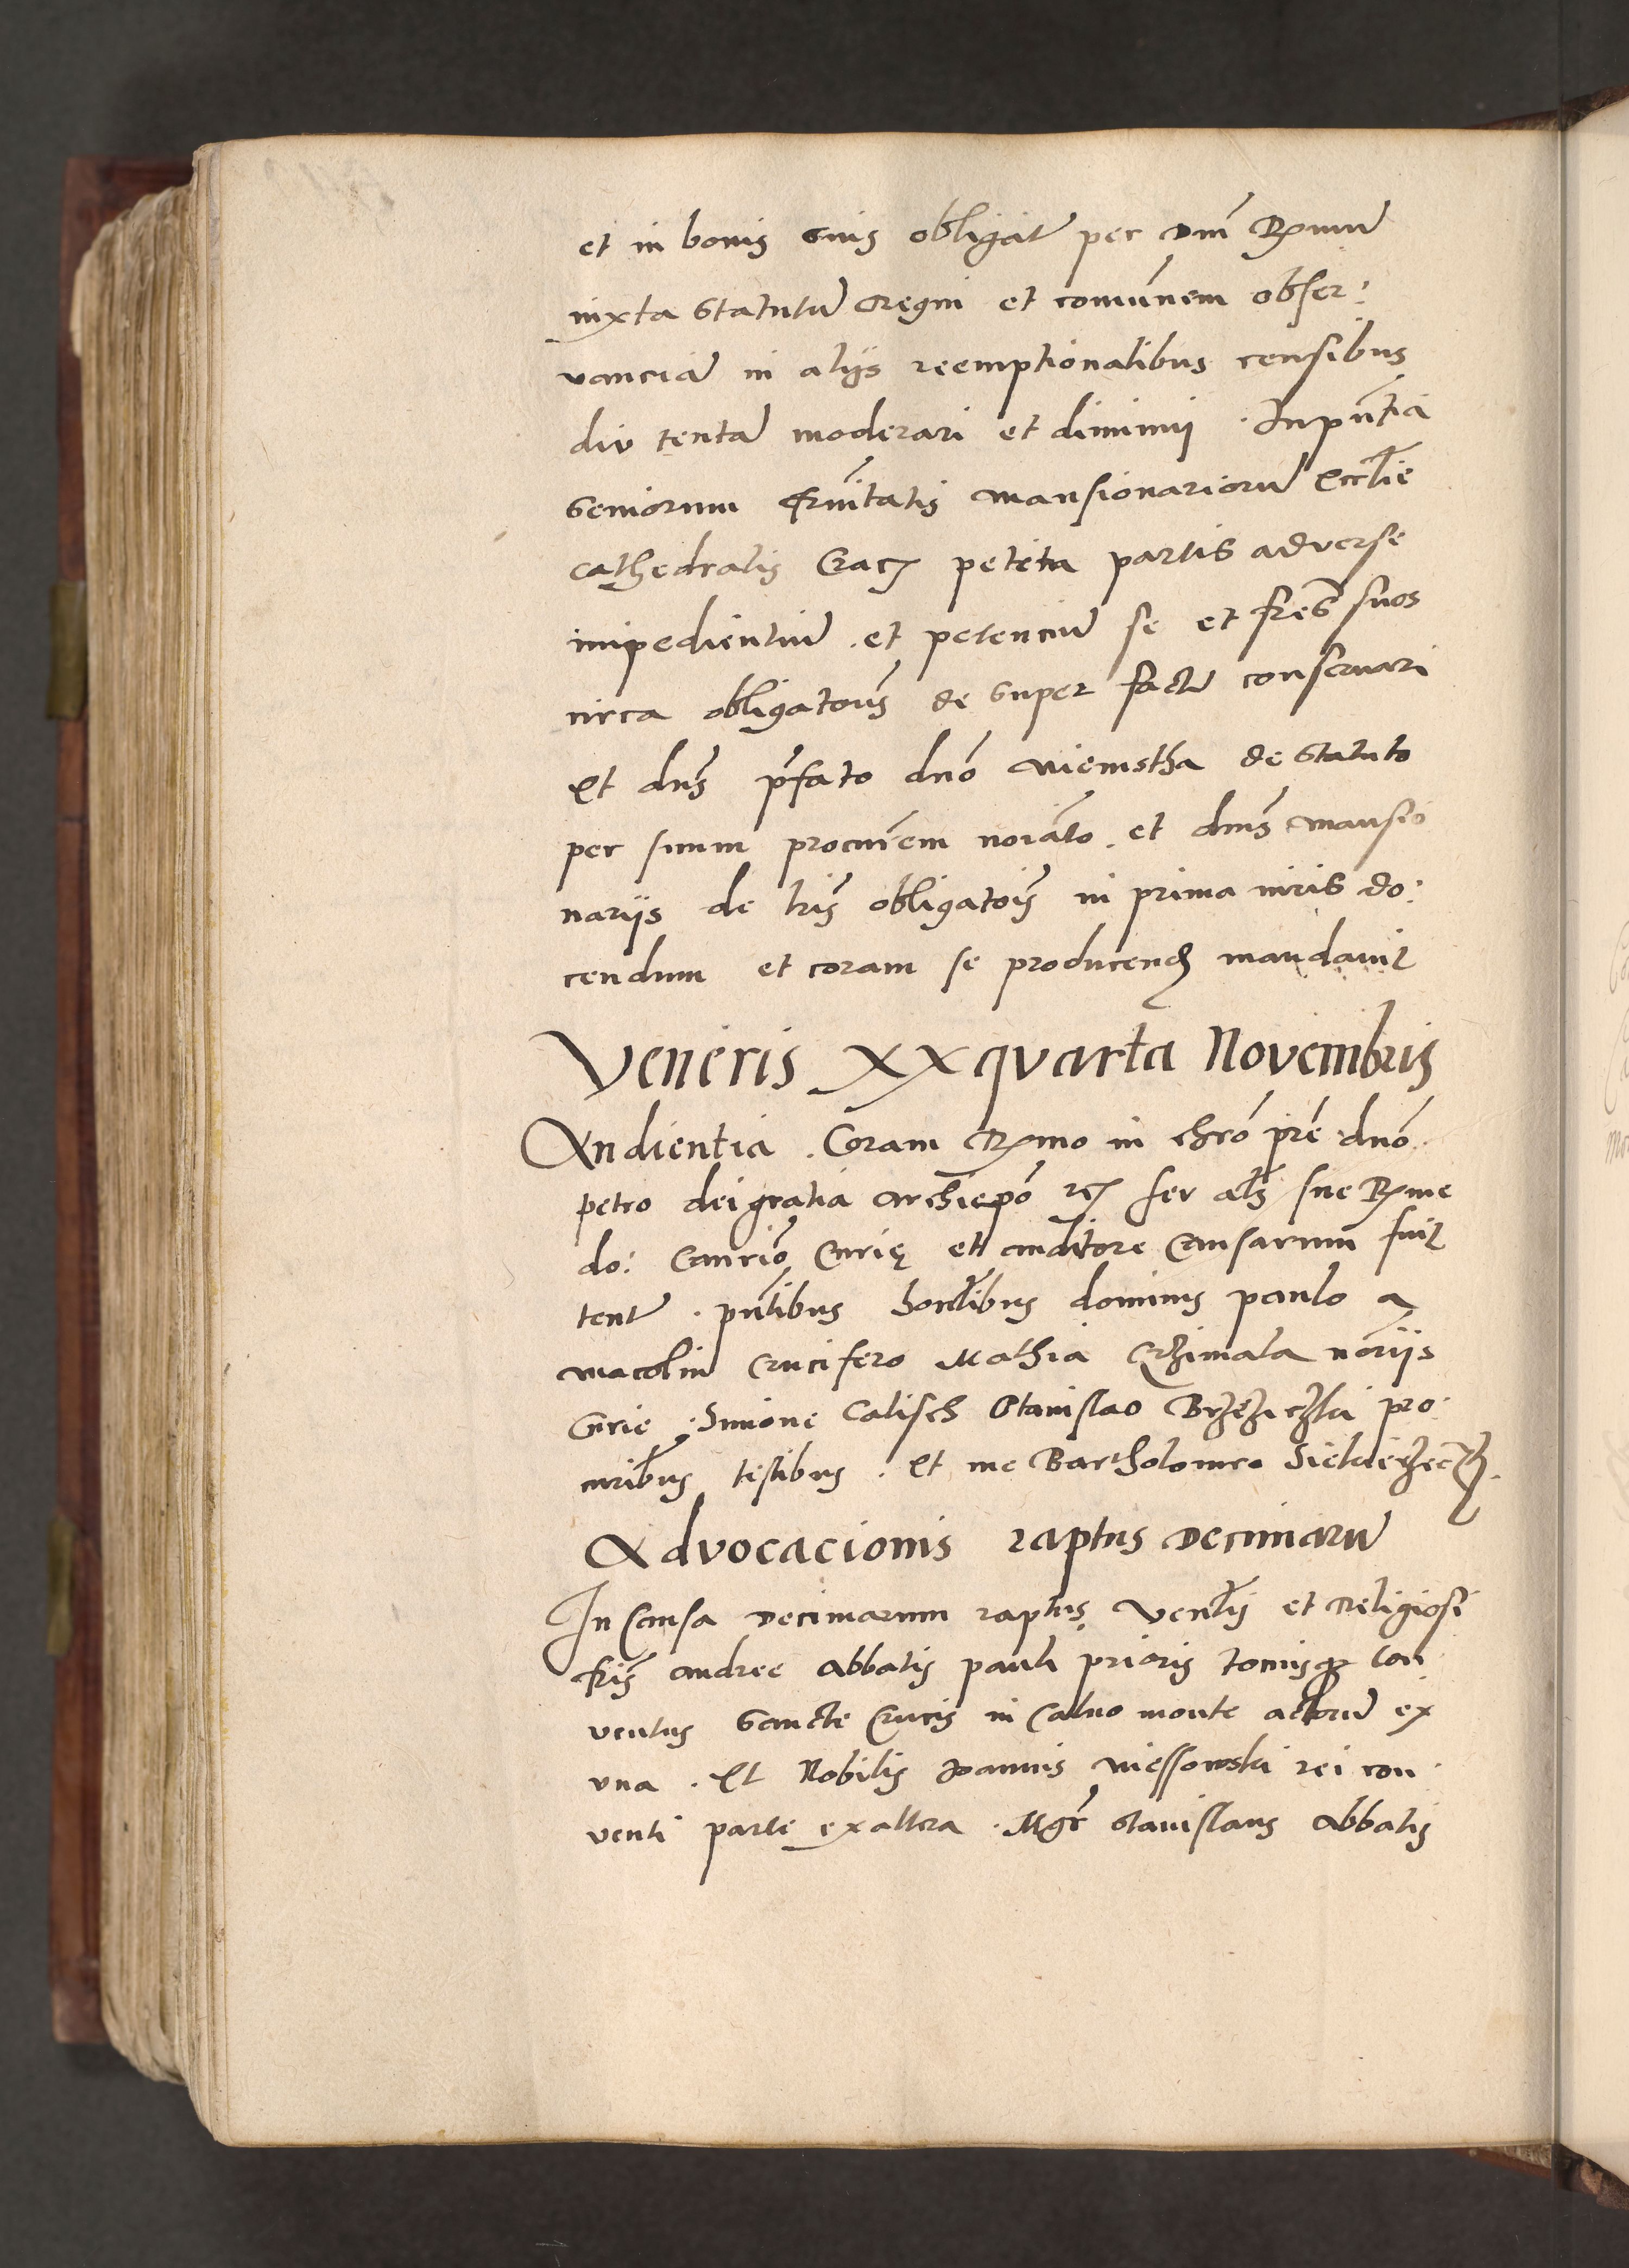 et in bonis suis obligat̃ per Dm̃ R̃mu͂
iuxta Statutu͂ Regni et com̃unem obser:
vancia͂ in alijs reemptionalibus censibus
diu tenta͂ moderari et diminuj . In pñtia
Seniorum frñitatis mansionarioru͂ Eccl̃ie
Cathedralis Crac̃ petita partis adverse
impediẽtiu͂ . et petenciu͂ se et fr̃es suos
circa obligatoñs de super factu͂ conservari
Et dñs p̃fato dño Niemstha de Statuto
per suum procur̃em noĩato . et dñis mansio
narijs de lr̃is obligatoĩs in prima iuris do:
cendum et coram se producend̃ mandavit
Veneris xx quarta Novembris
Audientia . Coram R̃mo in chr̃o pr̃e dño
petro dei gratia Archiep̃o rc̃ seu al̃s sue R̃me
do: Canc̃rio Curię et auditore Causarum fuit
tent̃ . pñtibus honl̃ibus dominis paulo a
macolin Crucifero Mathia nor̃ijs
Curie . Simone Calisch Stanislao pro
cur̃ibus testibus . Et me Bartholomeo
Advocacionis raptus Decimaru͂
In Causa Decimarum raptus Venl̃is et Religiosi
fr̃is Andree Abbatis pauli prioris tociusqʒ Con
ventus Sancte Crucis in Calvo monte actoru͂ ex
una . Et Nobilis Joannis niessowski rei con
venti parte ex altera . Mgr̃ Stanislaus Abbatis